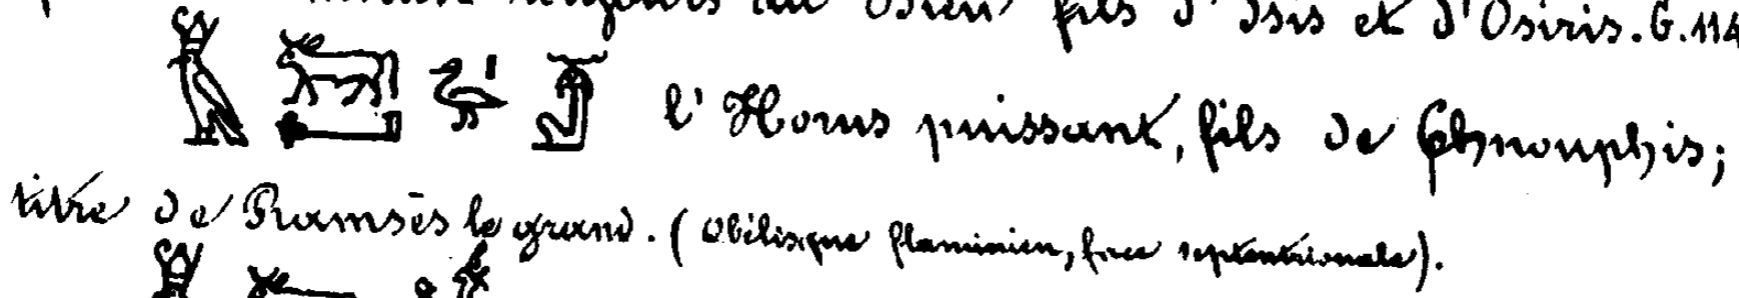 toujours au Dieu fils d'Isis et d'Osiris. G. 114
l'Horus puissant, fils de Chnouphis;
titre de Ramsès le grand. (obélisque flaminien, face septentrionale).